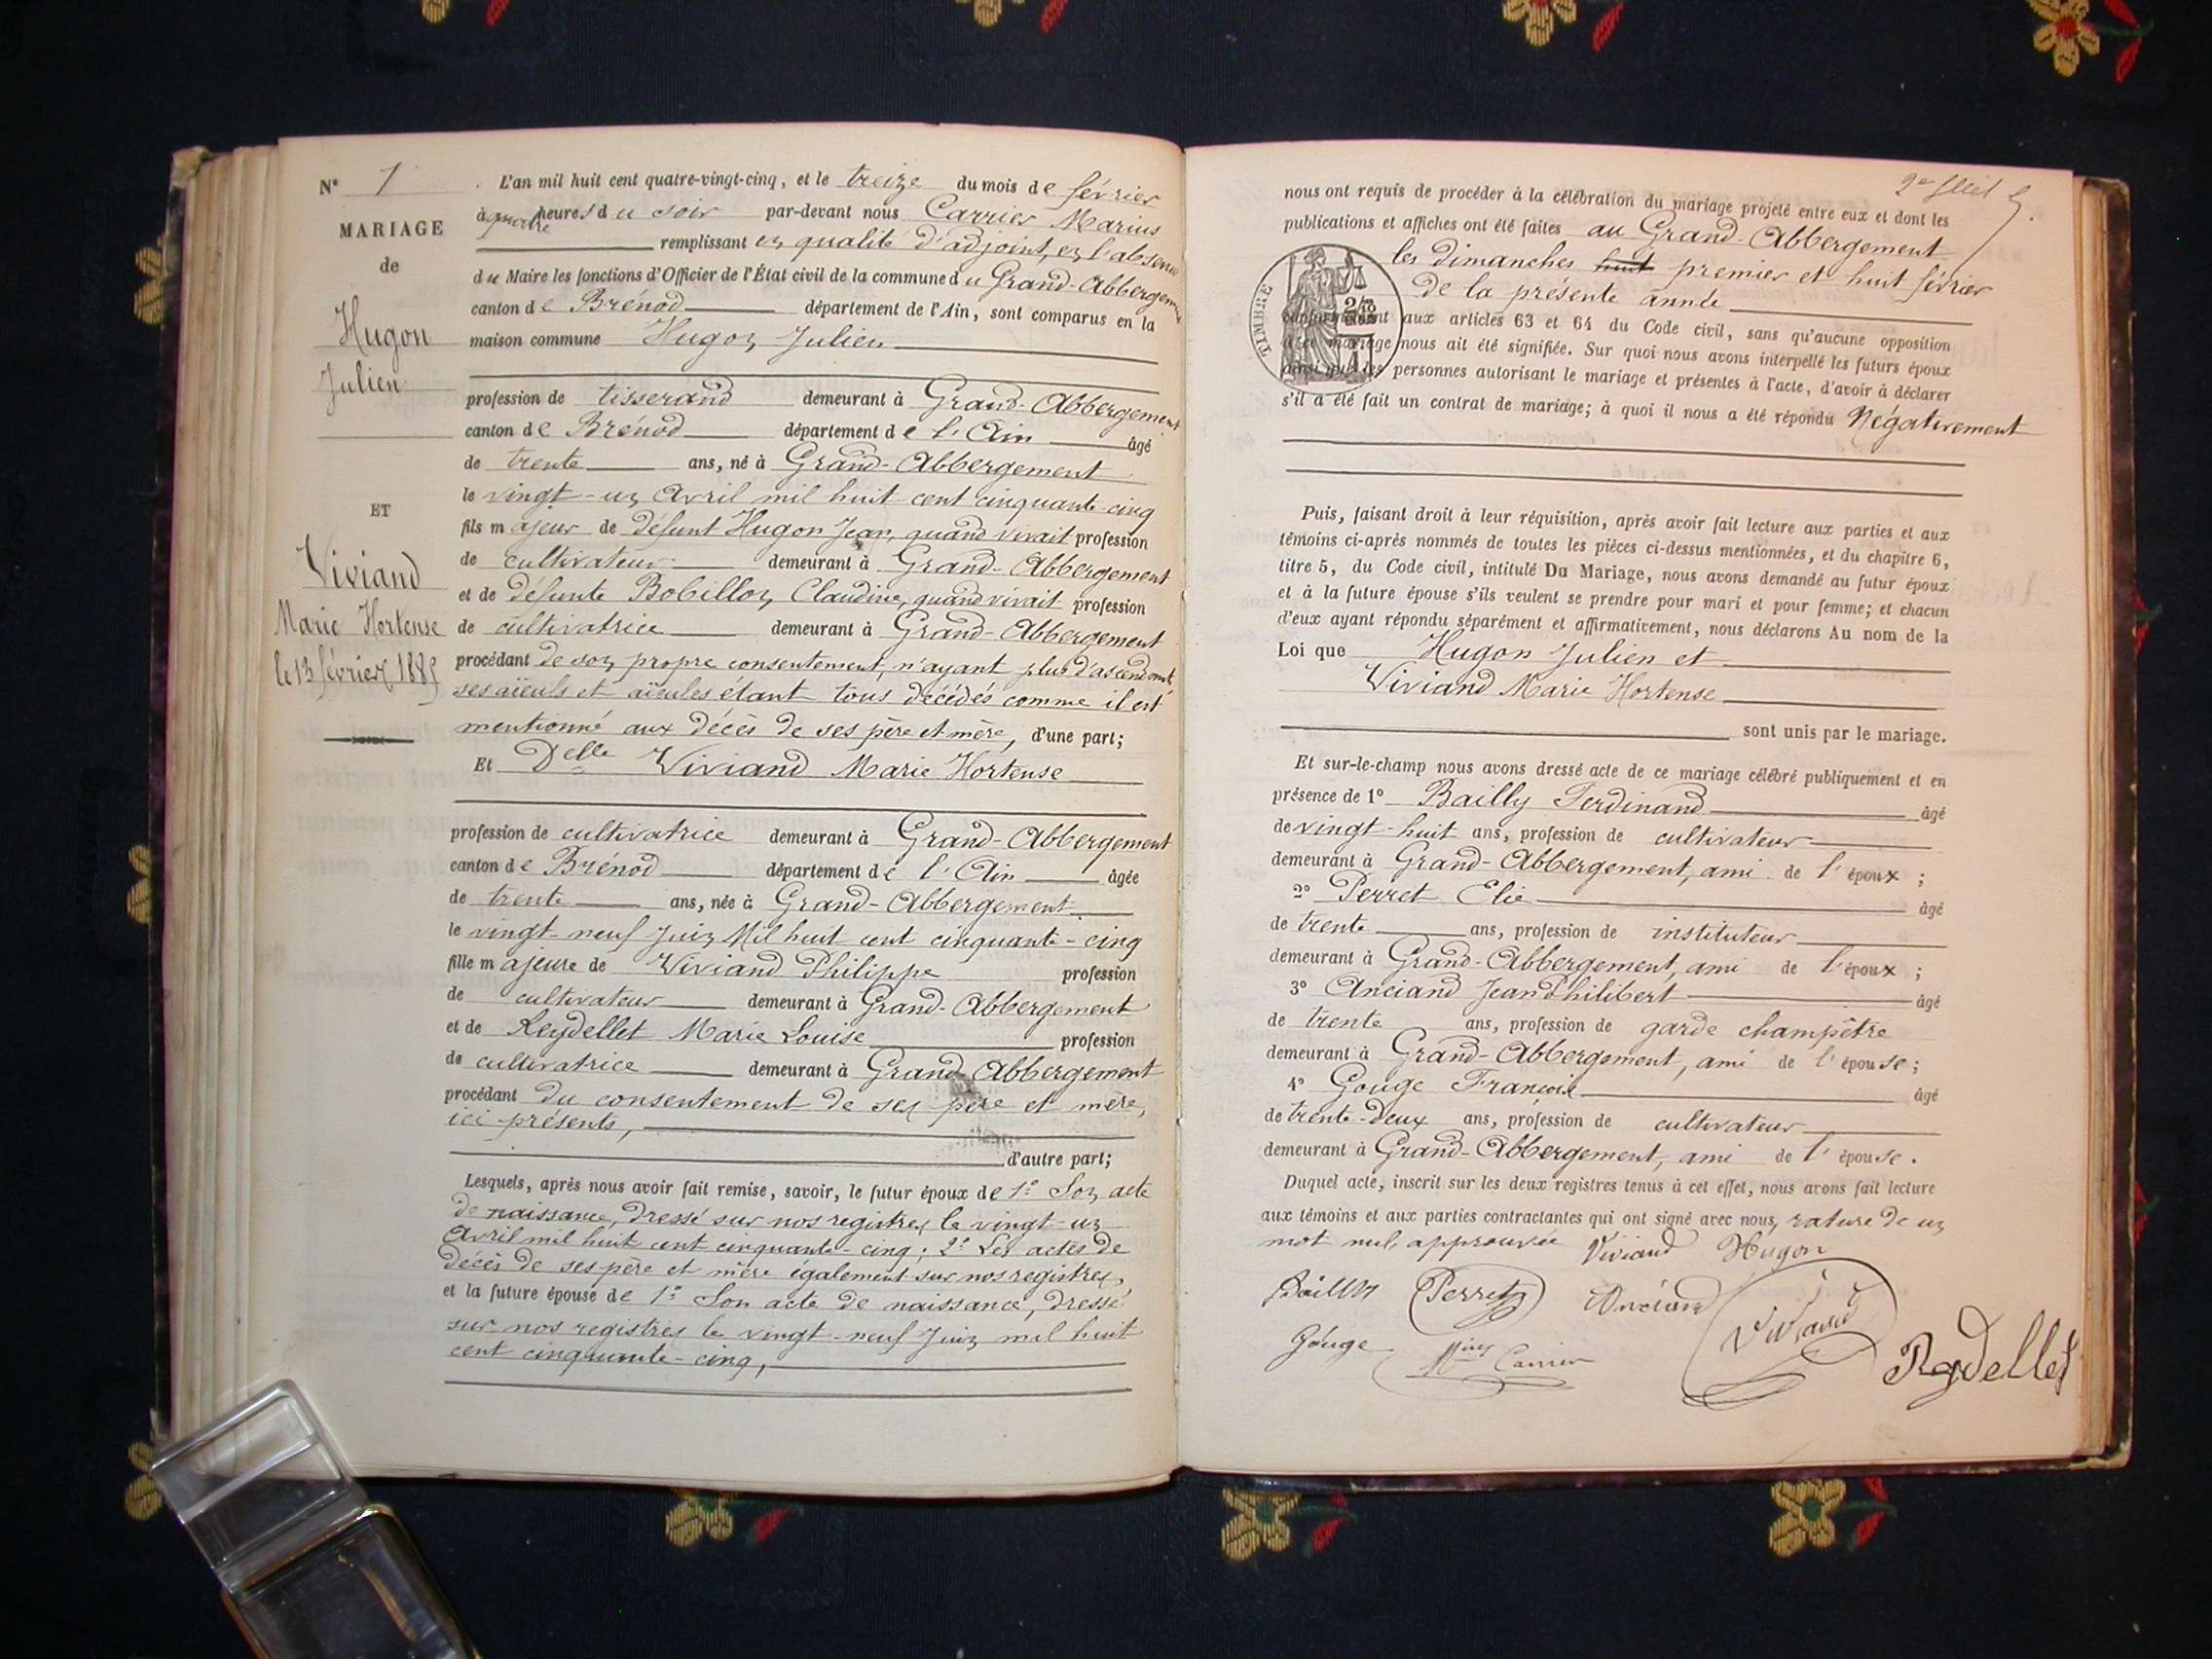 N° 1
MARIAGE
de
Hugon
Julien
ET
Viviand
Marie Hortense
le 13 février 1885
L'an mil huit cent quatre-vingt-cinq, et le treize du mois de février
à quatre heures du soir par-devant nous Carrier Marius
remplissant en qualité d'adjoint, en l'absence
du Maire les fonctions d'Officier de l'État civil de la commune du Grand-Abbergement
canton de Brénod département de l'Ain, sont comparus en la
maison commune Hugon Julien
profession de tisserand demeurant à Grand-Abbergement
canton de Brénod département de l'Ain âgé
de trente ans, né à Grand-Abbergement
le vingt-un Avril mil huit cent cinquante-cinq
fils majeur de défunt Hugon Jean, quand vivait profession
de cultivateur demeurant à Grand-Abbergement
et de défunte Bobillon Claudine, quand vivait profession
de cultivatrice demeurant à Grand-Abbergement
procédant de son propre consentement, n'ayant plus d'ascendant,
ses aïeuls et aïeules étant tous décédés comme il est
mentionné aux décès de ses père et mère, d'une part;
Et Delle Viviand Marie Hortense
profession de cultivatrice demeurant à Grand-Abbergement
canton de Brénod département de l'Ain âgée
de trente ans, née à Grand-Abbergement
le vingt-neuf Juin Mil huit cent cinquante-cinq
fille majeure de Viviand Philippe profession
de cultivateur demeurant à Grand-Abbergement
et de Reydellet Marie Louise profession
de cultivatrice demeurant à Grand-Abbergement
procédant du consentement de ses père et mère,
ici présents,
d'autre part;
Lesquels, après nous avoir fait remise, savoir, le futur époux de 1° Son acte
de naissance, dressé sur nos registres le vingt-un
Avril mil huit cent cinquante-cinq; 2° Les actes de
décès de ses père et mère également sur nos registres,
et la future épouse de 1° Son acte de naissance, dressé
sur nos registres le vingt-neuf Juin mil huit
cent cinquante-cinq,
nous ont requis de procéder à la célébration du mariage projeté entre eux et dont les
publications et affiches ont été faites au Grand-Abbergement
les dimanches huit premier et huit février
de la présente année
TIMBRE
conformément aux articles 63 et 64 du Code civil, sans qu'aucune opposition
à ce mariage nous ait été signifiée. Sur quoi nous avons interpellé les futurs époux
ainsi que les personnes autorisant le mariage et présentes à l'acte, d'avoir à déclarer
s'il a été fait un contrat de mariage; à quoi il nous a été répondu Négativement
Puis, faisant droit à leur réquisition, après avoir fait lecture aux parties et aux
témoins ci-après nommés de toutes les pièces ci-dessus mentionnées, et du chapitre 6,
titre 5, du Code civil, intitulé Du Mariage, nous avons demandé au futur époux
et à la future épouse s'ils veulent se prendre pour mari et pour femme; et chacun
d'eux ayant répondu séparément et affirmativement, nous déclarons Au nom de la
Loi que Hugon Julien et
Viviand Marie Hortense
sont unis par le mariage.
Et sur-le-champ nous avons dressé acte de ce mariage célébré publiquement et en
présence de 1° Bailly Ferdinand âgé
de vingt-huit ans, profession de cultivateur
demeurant à Grand-Abbergement, ami de l'époux;
2° Perret Elie âgé
de trente ans, profession de instituteur
demeurant à Grand-Abbergement, ami de l'époux;
3° Anciand Jean Philibert âgé
de trente ans, profession de garde champêtre
demeurant à Grand-Abbergement, ami de l'épouse;
4° Gouge François âgé
de trente-deux ans, profession de cultivateur
demeurant à Grand-Abbergement, ami de l'épouse.
Duquel acte, inscrit sur les deux registres tenus à cet effet, nous avons fait lecture
aux témoins et aux parties contractantes qui ont signé avec nous, rature de un
mot nul, approuvée Viviand Hugon
Bailly Perret Anciand Viviand
Gouge Mius Carrier Reydellet